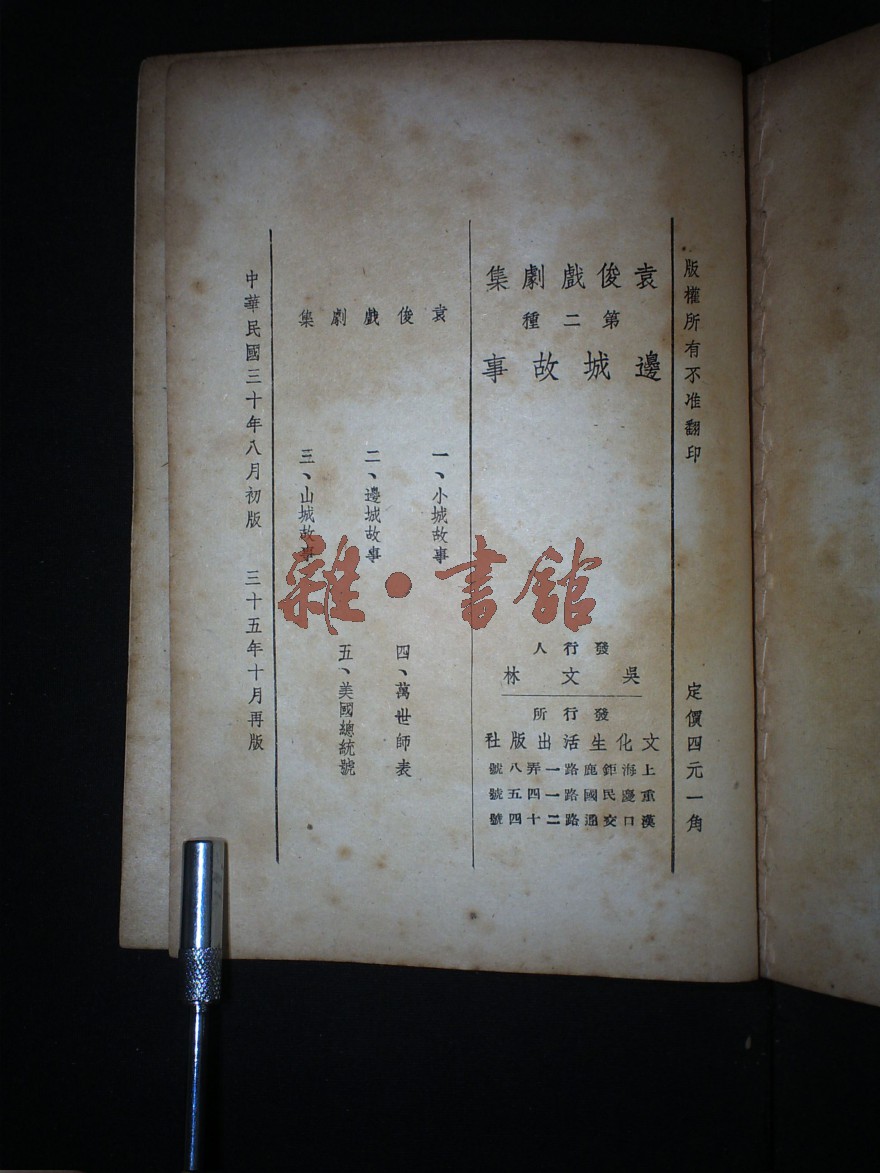 版權所有不准翻印
定價四元一角
袁俊戲劇集
第二種
邊城故事
發行人
吳文林
發行所
文化生活出版社
上海鉅鹿路一弄八號
重慶民國路一四五號
漢口交通路二十四號
袁俊戲劇集
一、小城故事
二、邊城故事
三、山城故事
四、萬世師表
五、美國總統號
中華民國三十年八月初版
三十五年十月再版
雜·書館